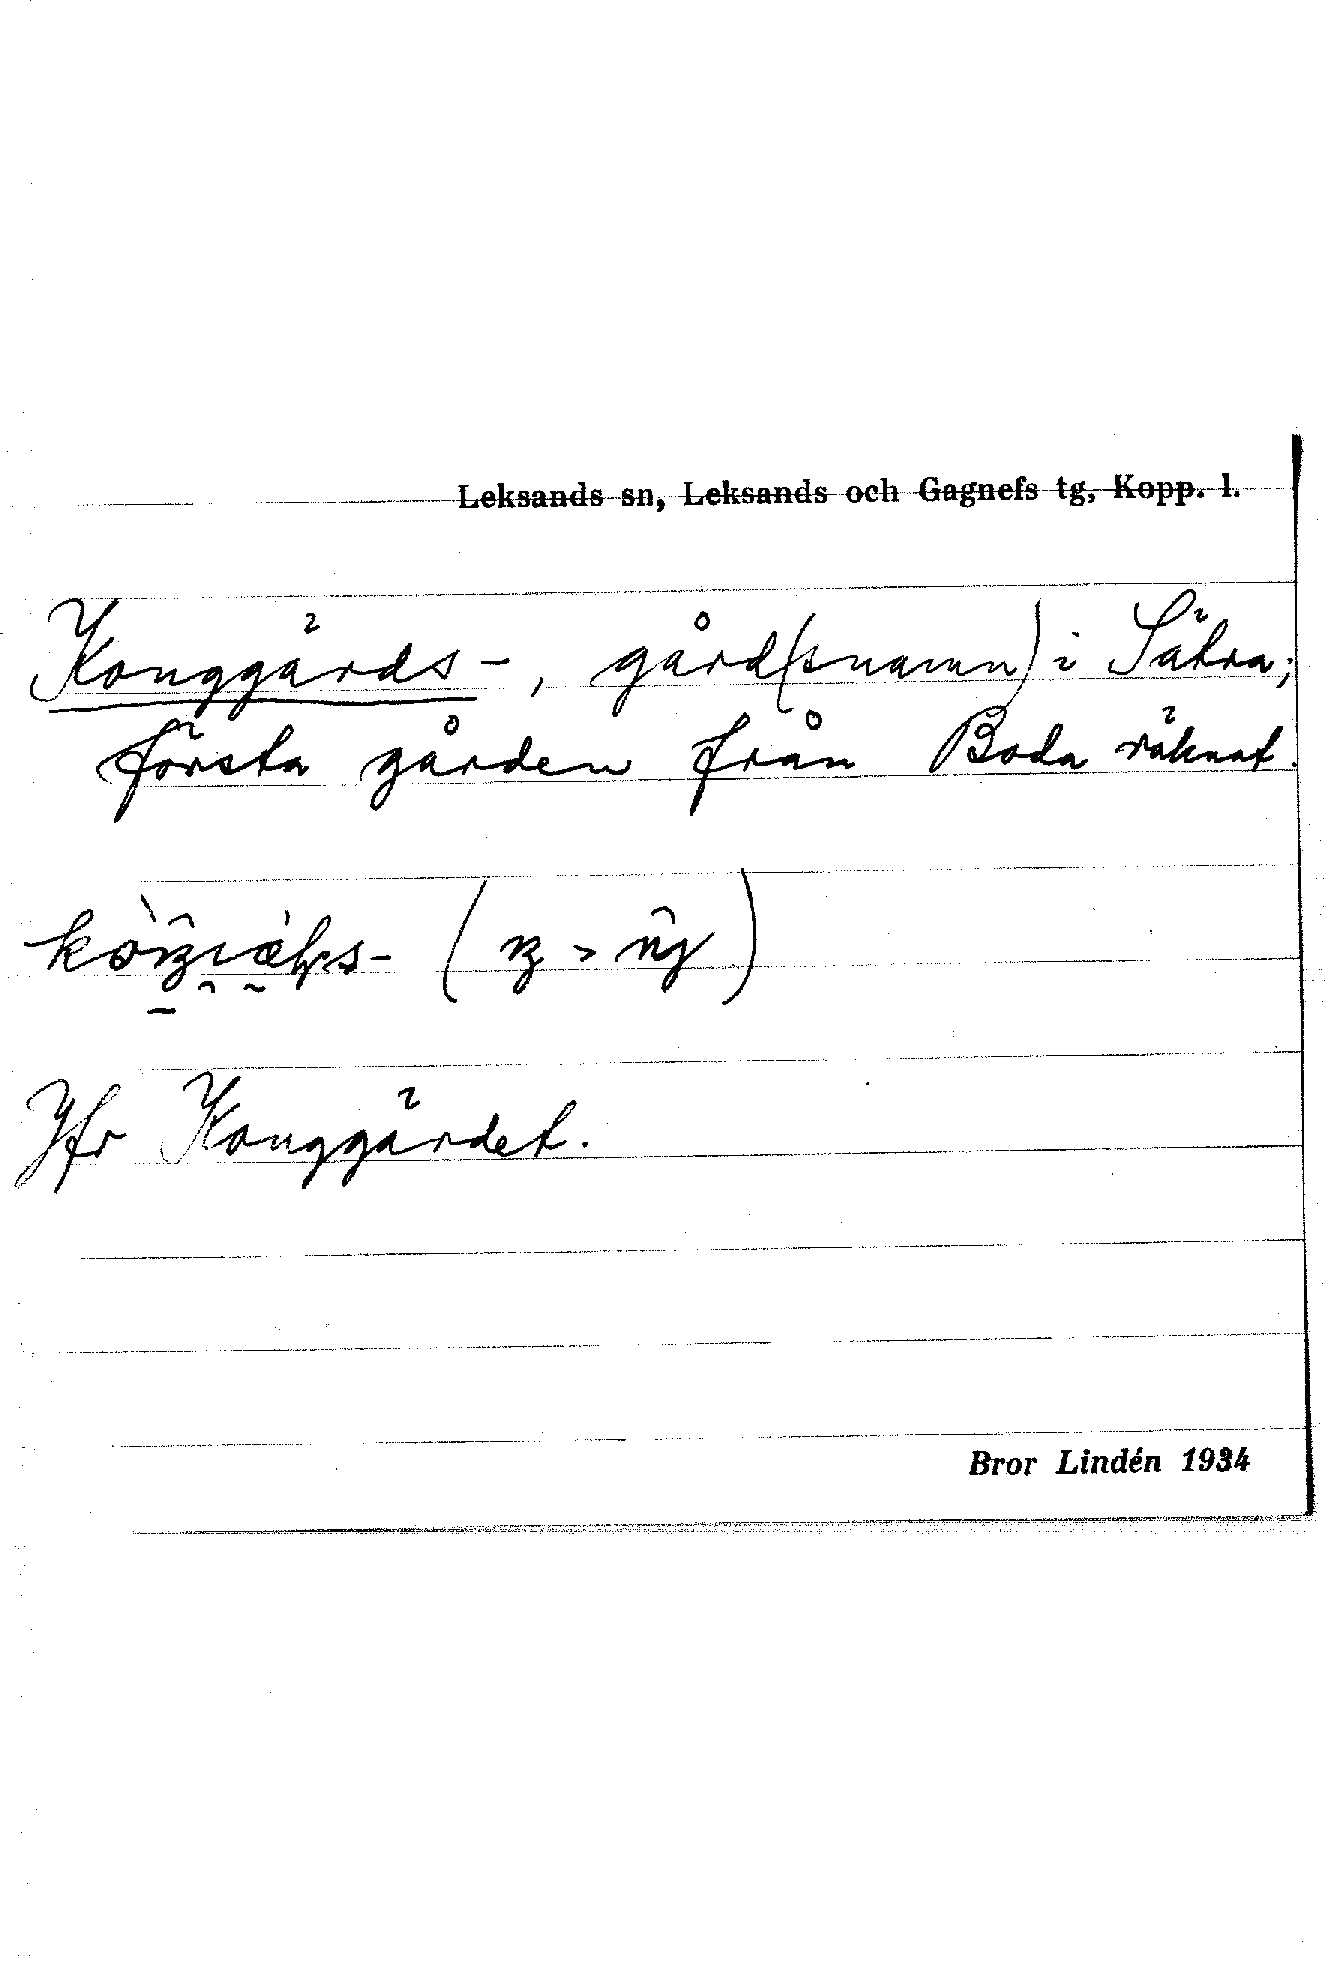 Leksands sn, Leksands och Gagnefs tg, Kopp. l.
Konggärds-, gård(snamn) i Sätra;
första gården från Boda räknat.
Jfr Konggärdet.
Bror Lindén 1934